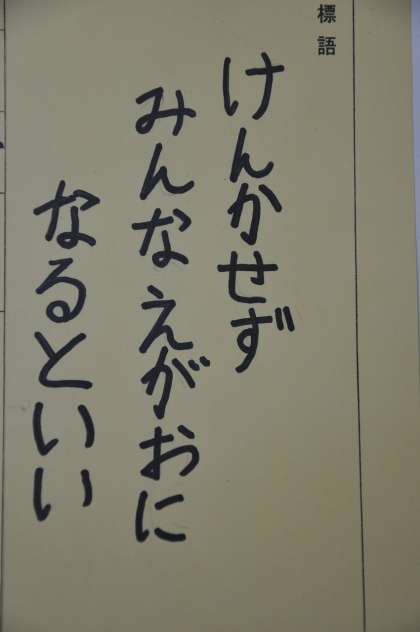 標語
けんかせず
みんなえがおに
なるといい